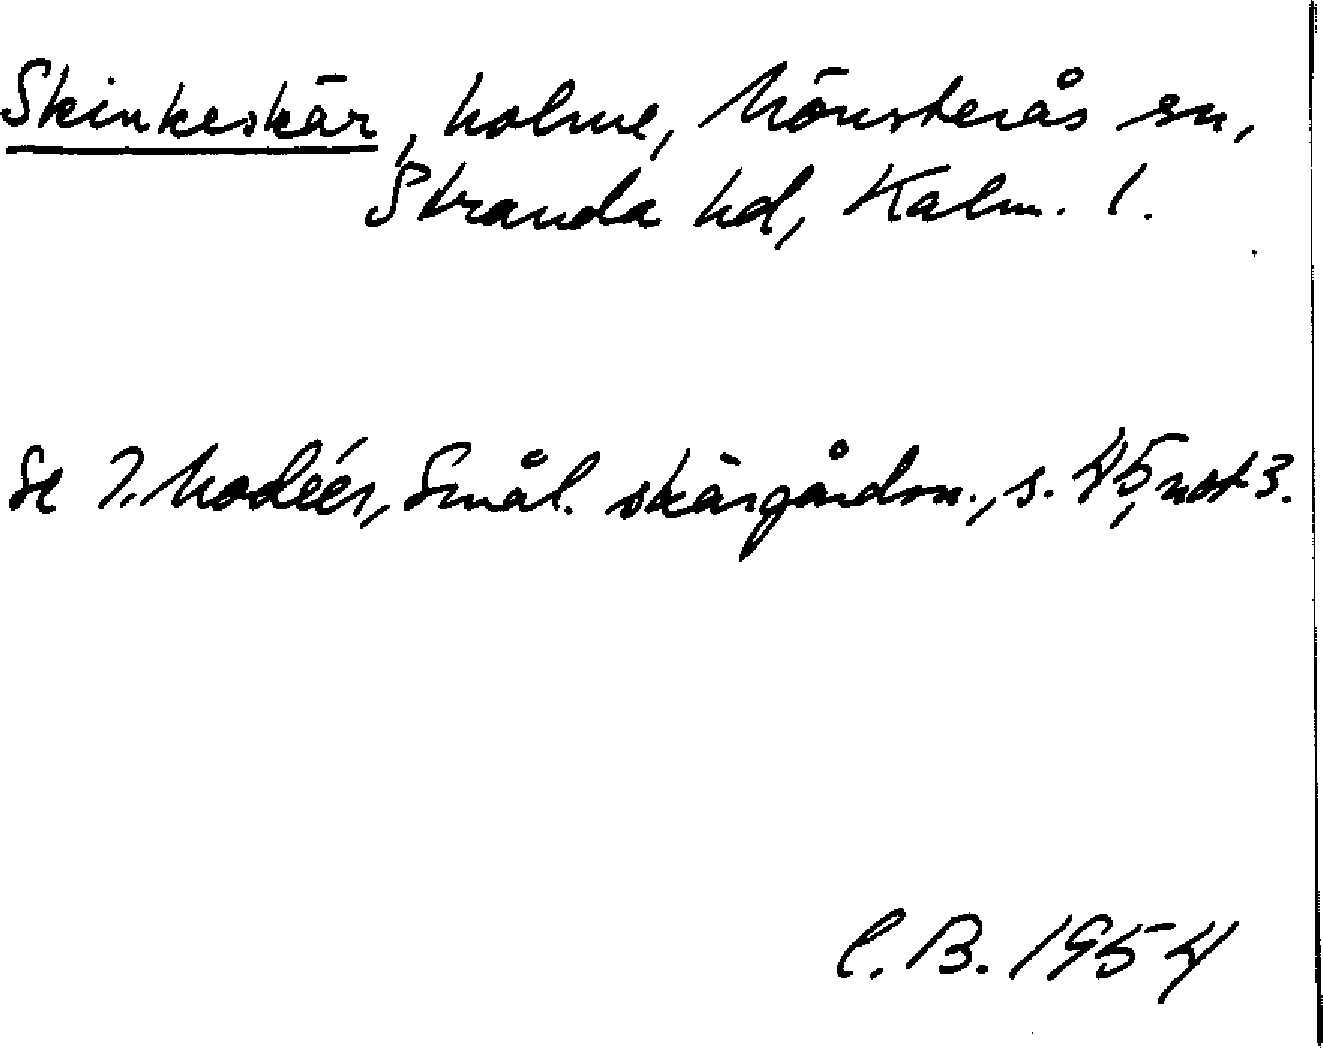 Skinkeskär, holme, Mönsterås sn,
Stranda hd, Kalm. l.
Se I. Modéer, Smål. skärgårdsn., s. 45, not 3.
C. B. 1954